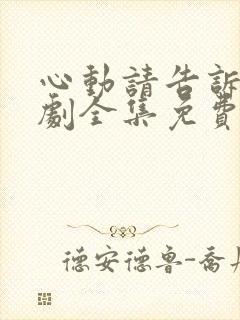 心動請告訴
劇全集免費
德安德鲁-喬